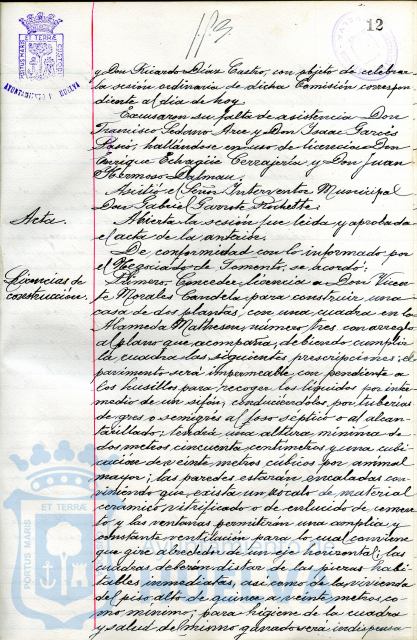 12
PORTUS MARIS ET TERRÆ CUSTOS
AYUNTAMIENTO HUELVA
y Don Ricardo Díaz Castro, con objeto de celebrar
la sesión ordinaria de dicha Comisión correspon
diente al día de hoy.
Excusaron su falta de asistencia Don
Francisco Sedano Arce y Don Isaac Garcés
hallándose en uso de licencia Don
Enrique Echagüe y Don Juan
Hermoso Dalmau.
Asistió el Señor Interventor Municipal
Don Gabriel Garrote
Acta.
Abierta la sesión fue leída y aprobada
el acta de la anterior.
De conformidad con lo informado por
el Negociado de Fomento, se acordó:
Licencias de
construcción.
Primero. Conceder licencia a Don Vicen
te Morales Candela para construir una
casa de dos plantas, con una cuadra en la
Alameda Matheson, número tres con arreglo
al plano que acompaña, debiendo cumplir
la cuadra las siguientes prescripciones: el
pavimento será impermeable con pendiente a
los husillos para recoger los líquidos por inter
medio de un sifón, conduciéndolos por tuberías
de gres o semigres al foso séptico o al alcan
tarillado; tendrá una altura mínima de
dos metros cincuenta centímetros y una cubi
cación de veinte metros cúbicos por animal
mayor; las paredes estarán encaladas con
viniendo que exista un zócalo de material
cerámico vitrificado o de enlucido de cemen
to y las ventanas permitirán una amplia y
constante ventilación para lo cual conviene
que gire alrededor de un eje horizontal; las
cuadras deberán distar de las piezas habi
tables inmediatas, así como de la vivienda
del piso alto de quince a veinte metros, co
mo mínimo; para higiene de la cuadra
y salud del mismo ganado será indispensa
PORTUS MARIS ET TERRÆ
AYUNTAMIENTO DE